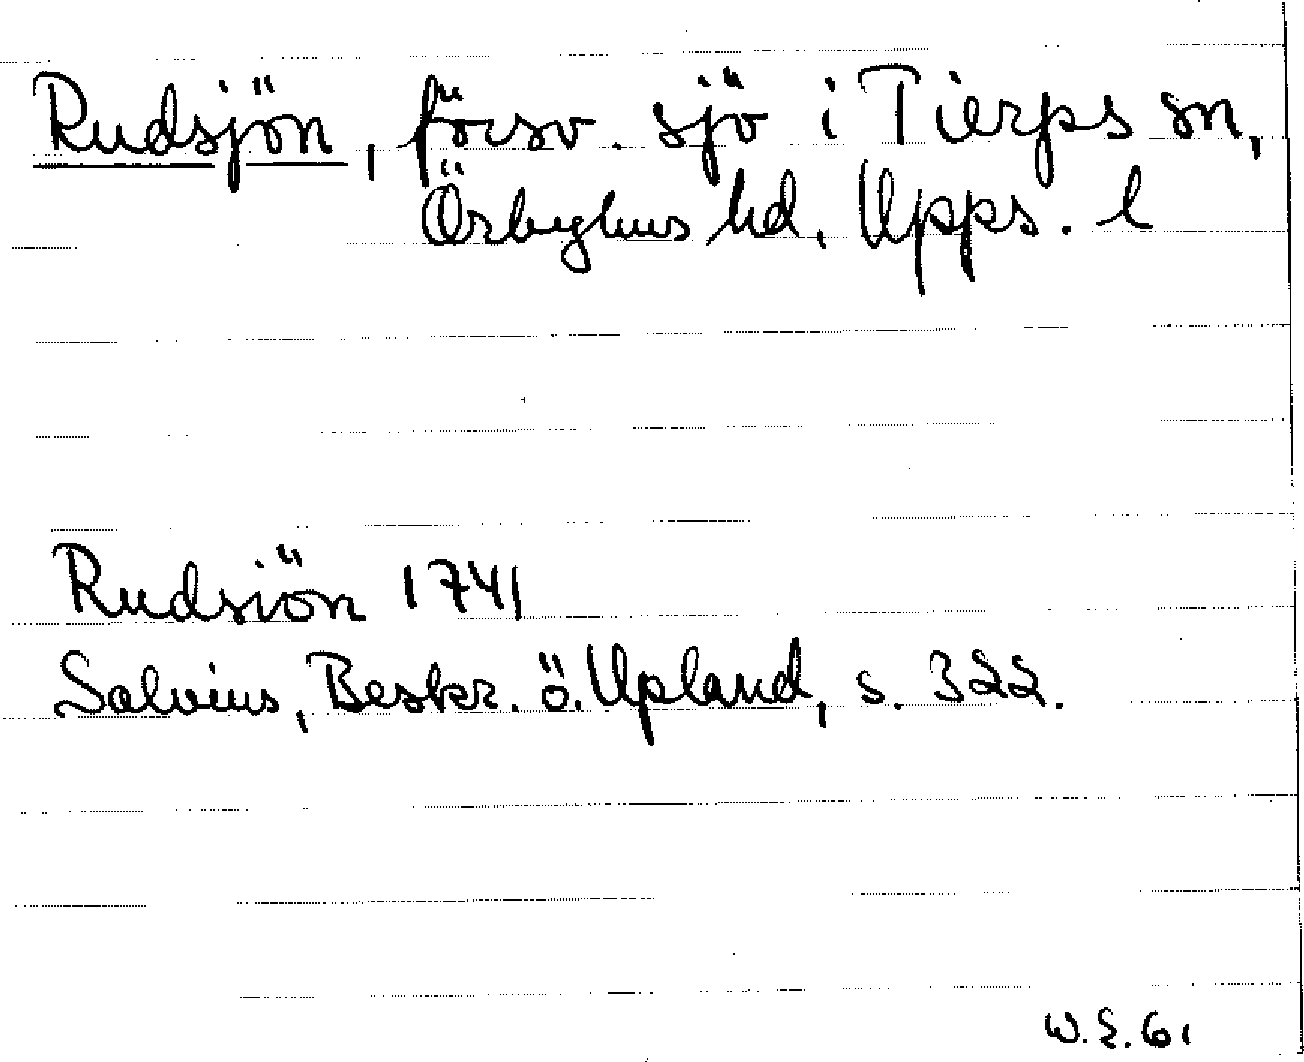 Rudsjön, försv. sjö i Tierps sn,
Örbyhus hd, Upps. l
Rudsiön 1741
Salvius, Beskr. ö. Upland, s. 322.
W.E. 61